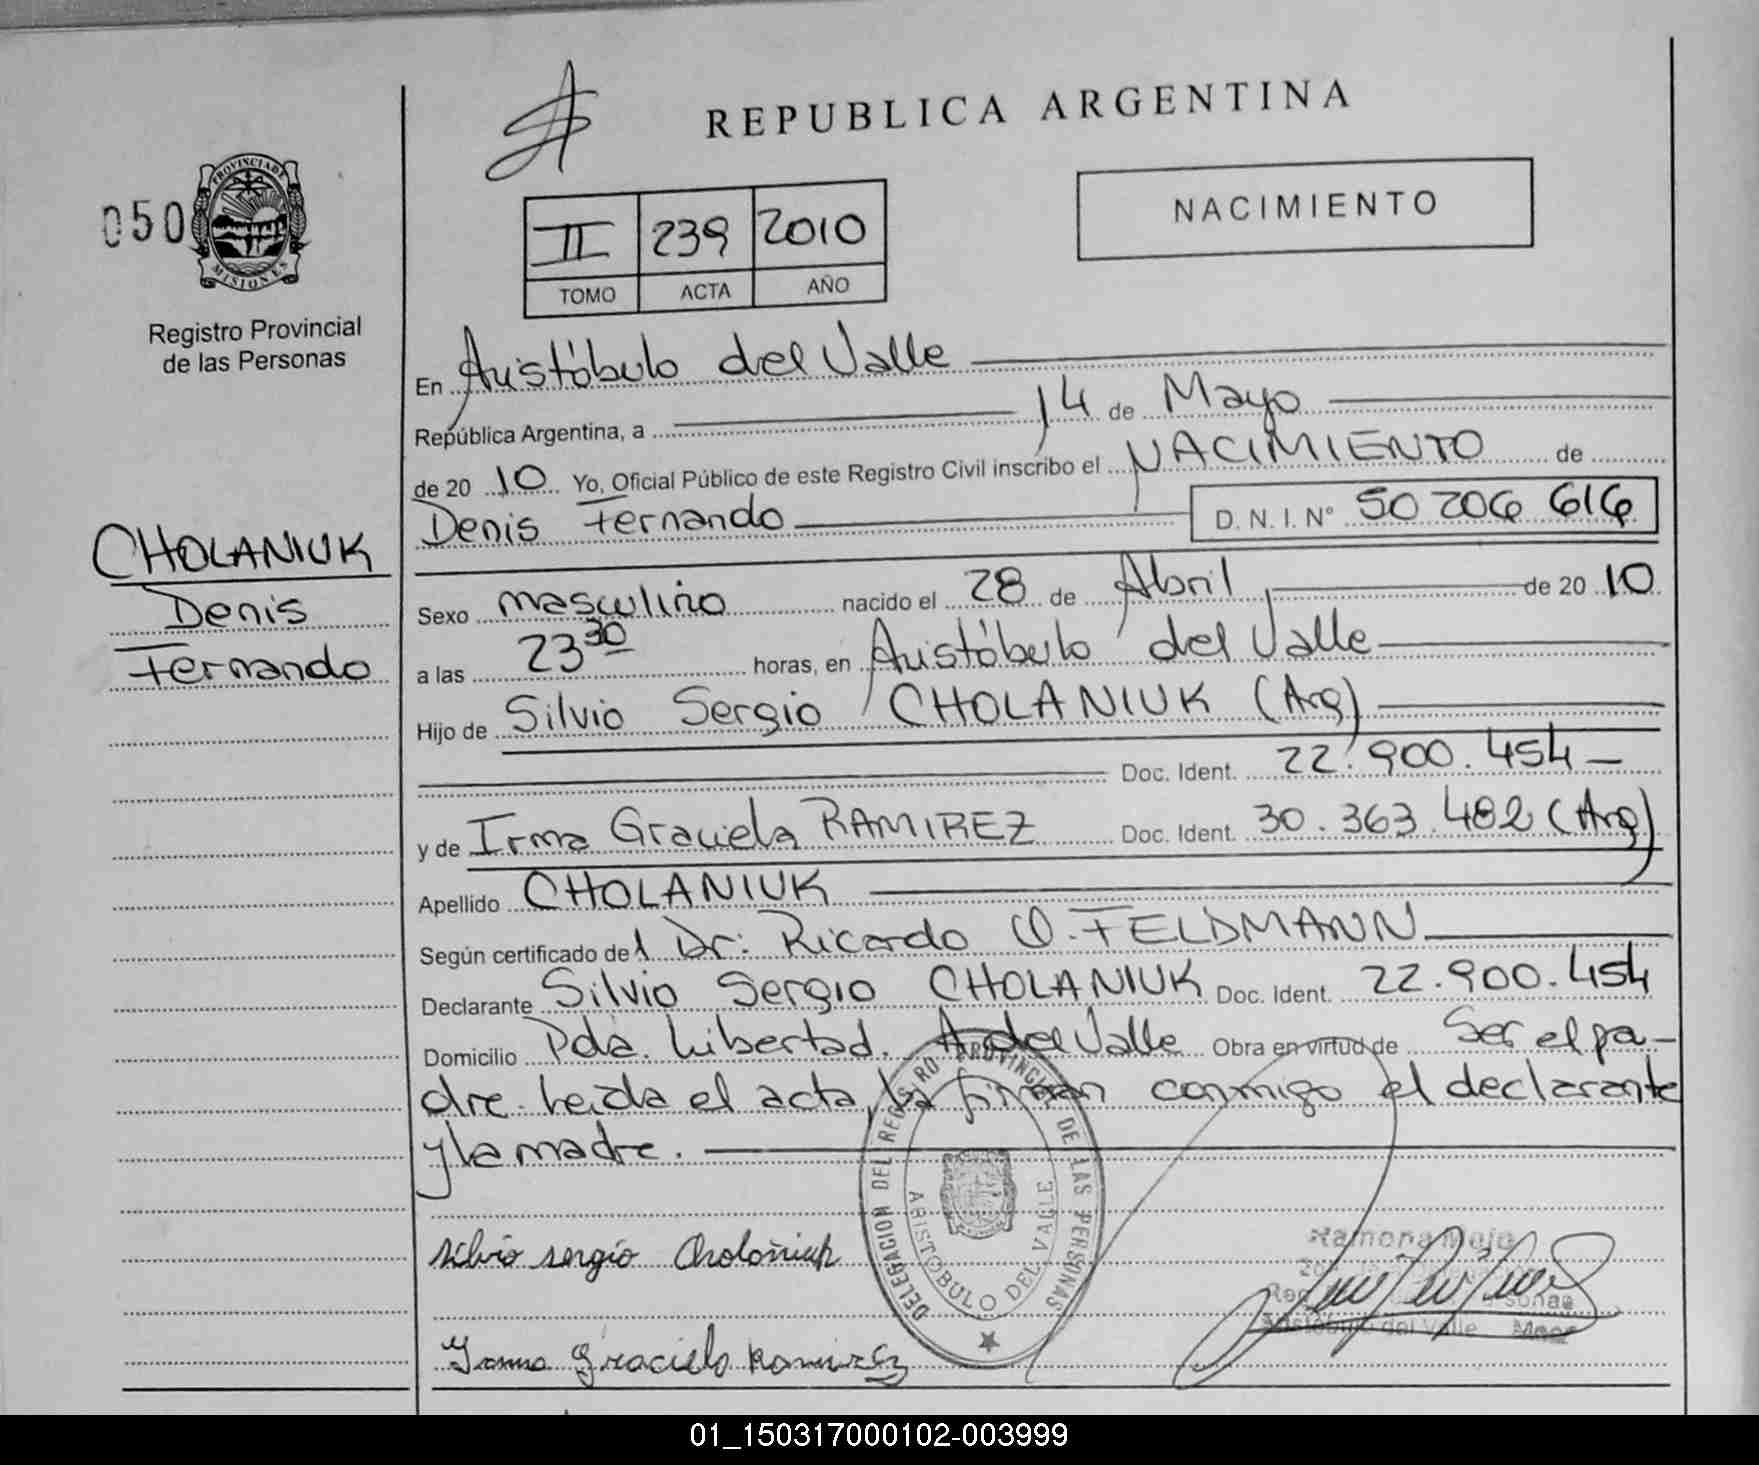 REPUBLICA ARGENTINA
NACIMIENTO
050
PROVINCIA DE
MISIONES
Registro Provincial
de las Personas
II 239 2010
TOMO ACTA AÑO
CHOLANIUK
Denis
Fernando
En Aristóbulo del Valle
República Argentina, a 14 de Mayo
de 20 10 Yo, Oficial Público de este Registro Civil inscribo el NACIMIENTO de
Denis Fernando D. N. I. N° 50 206 616
Sexo masculino nacido el 28 de Abril de 20 10
a las 23 30 horas, en Aristóbulo del Valle
Hijo de Silvio Sergio CHOLANIUK (Arg)
Doc. Ident. 22.900.454
y de Irma Graciela RAMIREZ Doc. Ident. 30.363.482 (Arg)
Apellido CHOLANIUK
Según certificado del Dr: Ricardo O. FELDMANN
Declarante Silvio Sergio CHOLANIUK Doc. Ident. 22.900.454
Domicilio Pda. Libertad. A del Valle Obra en virtud de Ser el pa-
dre. Leída el acta, la firman conmigo el declarante
y la madre.
DELEGACION DEL REGISTRO PROVINCIAL DE LAS PERSONAS
ARISTOBULO DEL VALLE
silvio sergio Cholaniuk
Irma Graciela Ramirez
Ramona
Aristóbulo del Valle
01_150317000102-003999